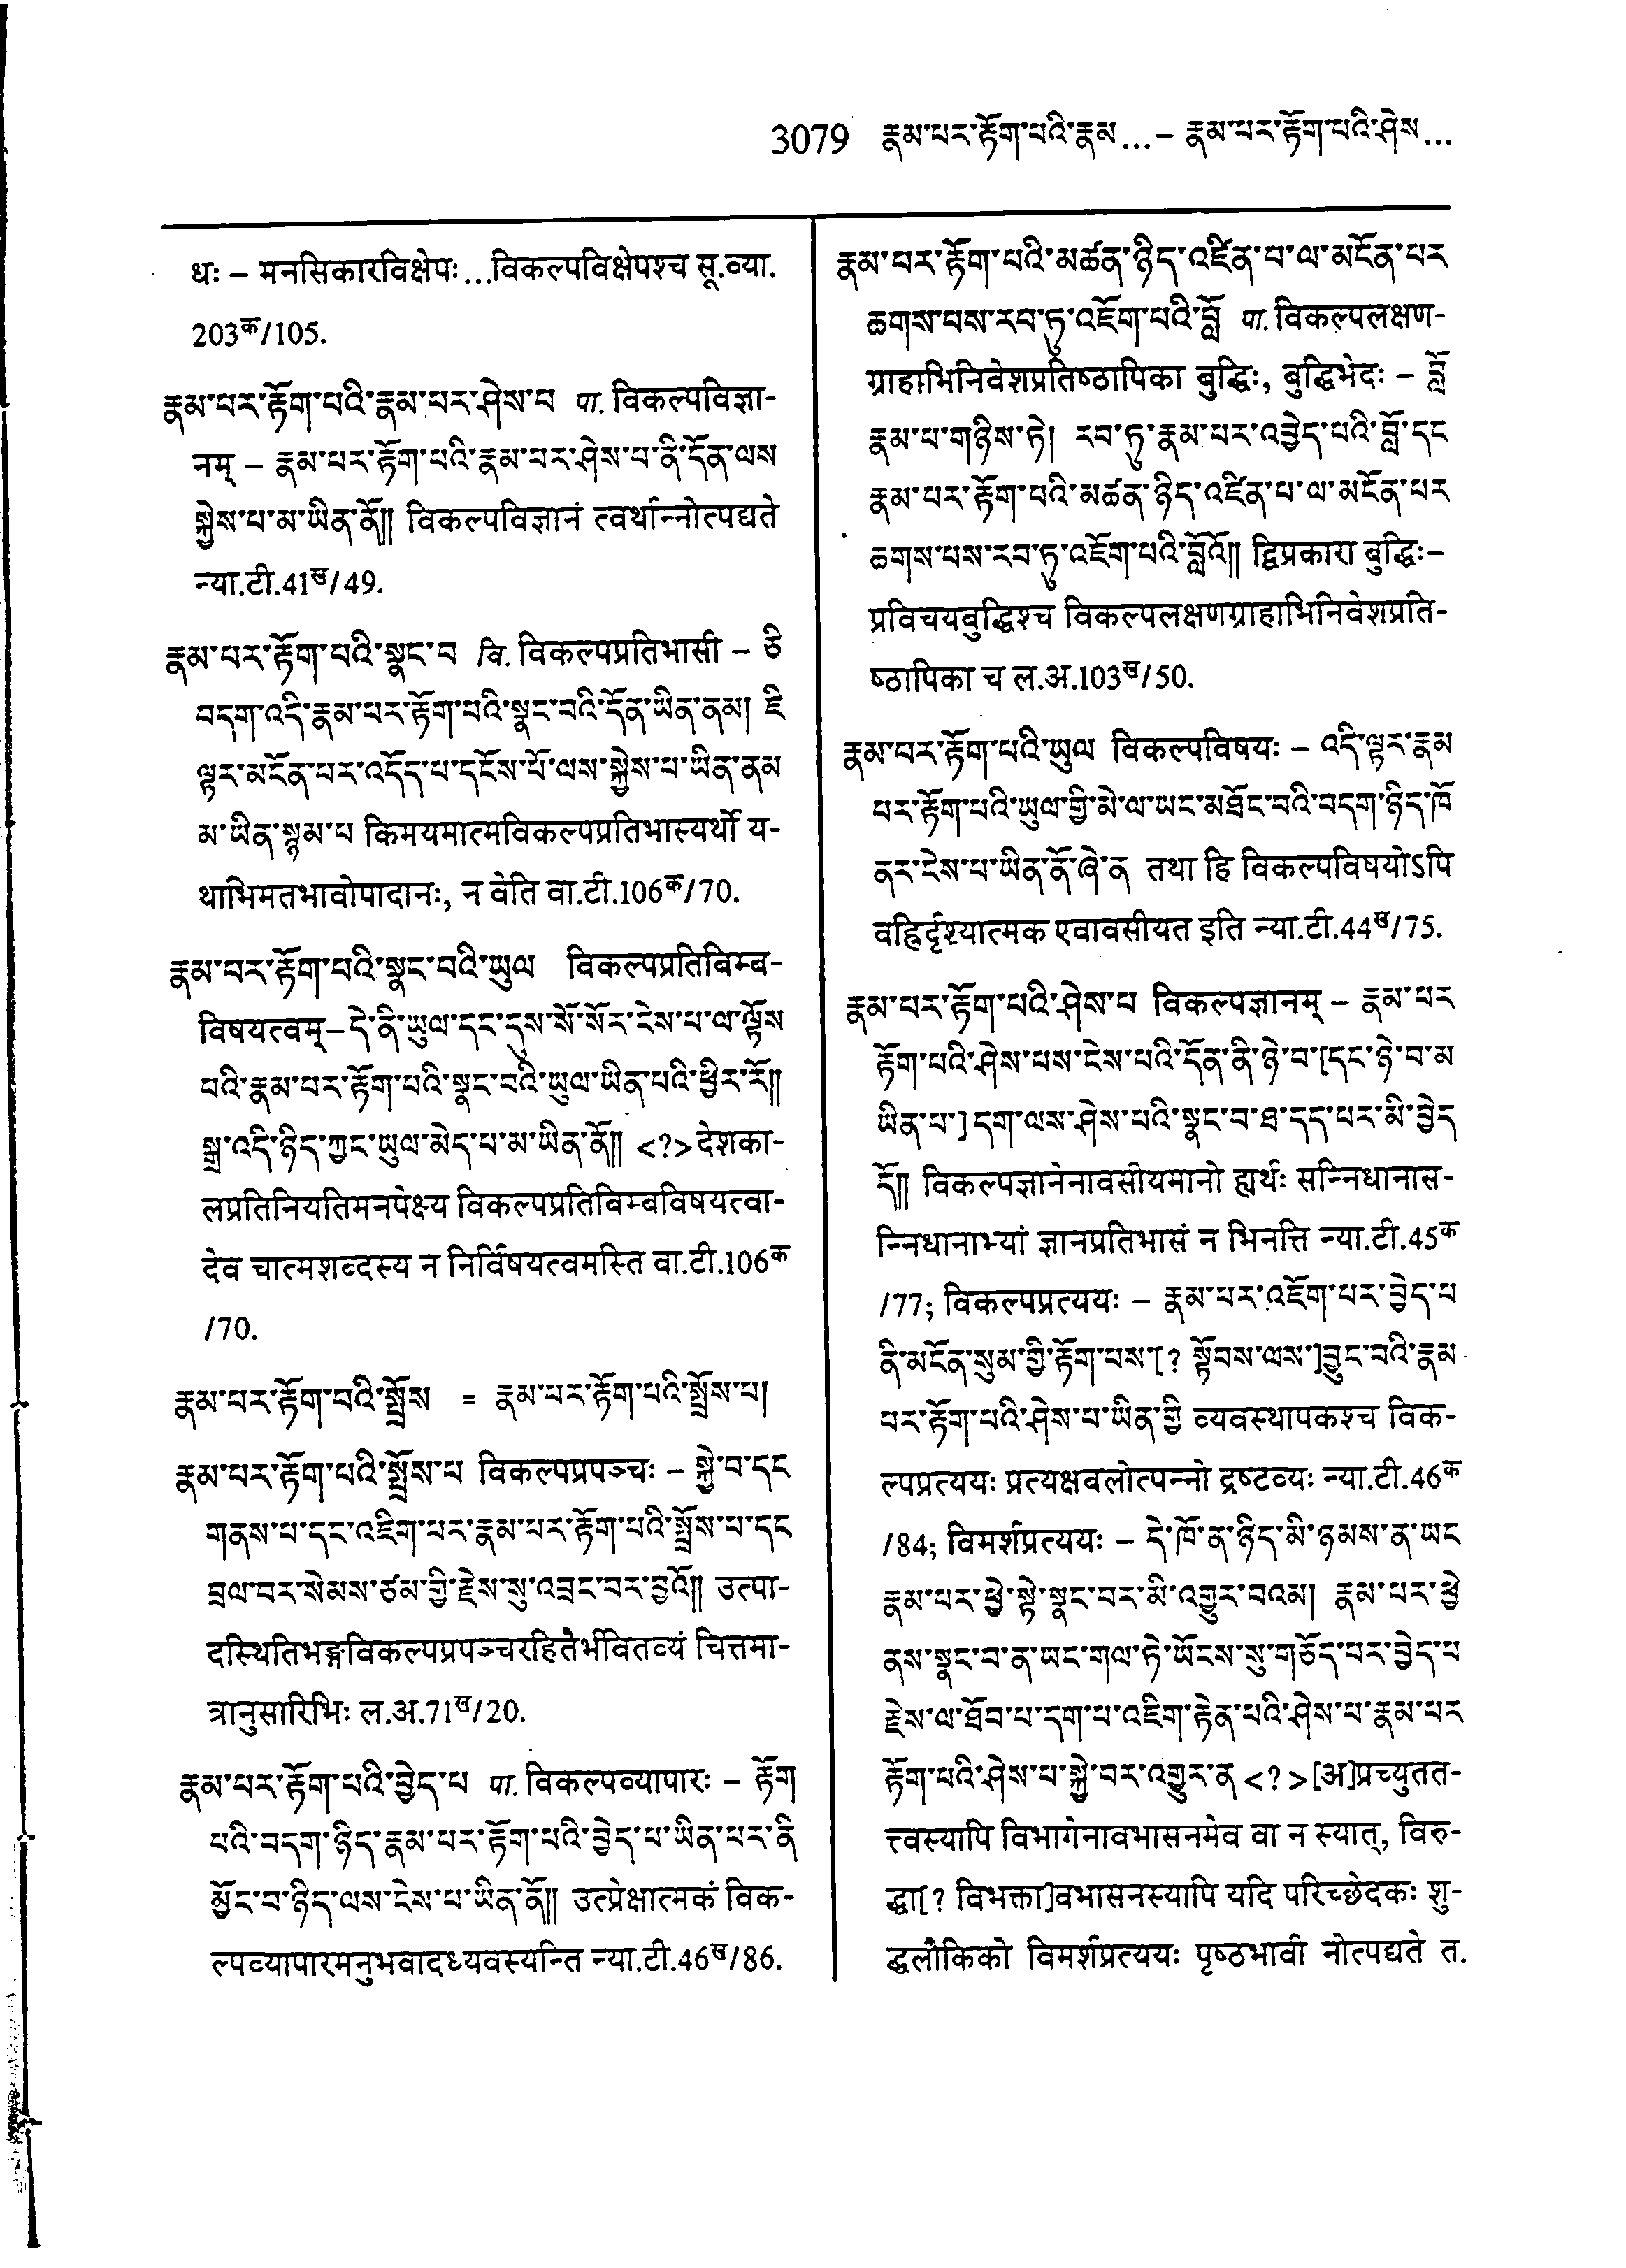 3079 རྣམ་པར་རྟོག་པའི་རྣམ...– རྣམ་པར་རྟོག་པའི་ཤེས...
धः – मनसिकारविक्षेपः...विकल्पविक्षेपश्च सू.व्या.
203क/105.
རྣམ་པར་རྟོག་པའི་རྣམ་པར་ཤེས་པ पा. विकल्पविज्ञा-
नम् – རྣམ་པར་རྟོག་པའི་རྣམ་པར་ཤེས་པ་ནི་དོན་ལས
སྐྱེས་པ་མ་ཡིན་ནོ།། विकल्पविज्ञानं त्वर्थान्नोत्पद्यते
न्या.टी.41ख/49.
རྣམ་པར་རྟོག་པའི་སྣང་བ वि. विकल्पप्रतिभासी – ཅི
བདག་འདི་རྣམ་པར་རྟོག་པའི་སྣང་བའི་དོན་ཡིན་ནམ། ཇི
ལྟར་མངོན་པར་འདོད་པ་དངོས་པོ་ལས་སྐྱེས་པ་ཡིན་ནམ
མ་ཡིན་སྙམ་པ किमयमात्मविकल्पप्रतिभास्यर्थो य-
थाभिमतभावोपादानः, न वेति वा.टी.106क/70.
རྣམ་པར་རྟོག་པའི་སྣང་བའི་ཡུལ विकल्पप्रतिबिम्ब-
विषयत्वम्–དེ་ནི་ཡུལ་དང་དུས་སོ་སོར་ངེས་པ་ལ་ལྟོས
པའི་རྣམ་པར་རྟོག་པའི་སྣང་བའི་ཡུལ་ཡིན་པའི་ཕྱིར་རོ།།
སྒྲ་འདི་ཉིད་ཀྱང་ཡུལ་མེད་པ་མ་ཡིན་ནོ།། <?> देशका-
लप्रतिनियतिमनपेक्ष्य विकल्पप्रतिबिम्बविषयत्वा-
देव चात्मशब्दस्य न निर्विषयत्वमस्ति वा.टी.106क
/70.
རྣམ་པར་རྟོག་པའི་སྤྲོས = རྣམ་པར་རྟོག་པའི་སྤྲོས་པ།
རྣམ་པར་རྟོག་པའི་སྤྲོས་པ विकल्पप्रपञ्चः – སྐྱེ་བ་དང
གནས་པ་དང་འཇིག་པར་རྣམ་པར་རྟོག་པའི་སྤྲོས་པ་དང
བྲལ་བར་སེམས་ཙམ་གྱི་རྗེས་སུ་འབྲང་བར་བྱའོ།། उत्पा-
दस्थितिभङ्गविकल्पप्रपञ्चरहितैर्भवितव्यं चित्तमा-
त्रानुसारिभिः ल.अ.71ख/20.
རྣམ་པར་རྟོག་པའི་བྱེད་པ पा. विकल्पव्यापारः – རྟོག
པའི་བདག་ཉིད་རྣམ་པར་རྟོག་པའི་བྱེད་པ་ཡིན་པར་ནི
མྱོང་བ་ཉིད་ལས་ངེས་པ་ཡིན་ནོ།། उत्प्रेक्षात्मकं विक-
ल्पव्यापारमनुभवादध्यवस्यन्ति न्या.टी.46ख/86.
རྣམ་པར་རྟོག་པའི་མཚན་ཉིད་འཛིན་པ་ལ་མངོན་པར
ཆགས་པས་རབ་ཏུ་འཇོག་པའི་བློ पा. विकल्पलक्षण-
ग्राहाभिनिवेशप्रतिष्ठापिका बुद्धिः, बुद्धिभेदः – བློ
རྣམ་པ་གཉིས་ཏེ། རབ་ཏུ་རྣམ་པར་འབྱེད་པའི་བློ་དང
རྣམ་པར་རྟོག་པའི་མཚན་ཉིད་འཛིན་པ་ལ་མངོན་པར
ཆགས་པས་རབ་ཏུ་འཇོག་པའི་བློའོ།། द्विप्रकारा बुद्धिः–
प्रविचयबुद्धिश्च विकल्पलक्षणग्राहाभिनिवेशप्रति-
ष्ठापिका च ल.अ.103ख/50.
རྣམ་པར་རྟོག་པའི་ཡུལ विकल्पविषयः – འདི་ལྟར་རྣམ
པར་རྟོག་པའི་ཡུལ་གྱི་མེ་ལ་ཡང་མཐོང་བའི་བདག་ཉིད་ཁོ
ནར་ངེས་པ་ཡིན་ནོ་ཞེ་ན तथा हि विकल्पविषयोऽपि
वह्निर्दृश्यात्मक एवावसीयत इति न्या.टी.44ख/75.
རྣམ་པར་རྟོག་པའི་ཤེས་པ विकल्पज्ञानम् – རྣམ་པར
རྟོག་པའི་ཤེས་པས་ངེས་པའི་དོན་ནི་ཉེ་བ་[དང་ཉེ་བ་མ
ཡིན་པ་]དག་ལས་ཤེས་པའི་སྣང་བ་ཐ་དད་པར་མི་བྱེད
དོ།། विकल्पज्ञानेनावसीयमानो ह्यर्थः सन्निधानास-
न्निधानाभ्यां ज्ञानप्रतिभासं न भिनत्ति न्या.टी.45क
/77; विकल्पप्रत्ययः – རྣམ་པར་འཇོག་པར་བྱེད་པ
ནི་མངོན་སུམ་གྱི་རྟོག་པས་[? སྟོབས་ལས་]བྱུང་བའི་རྣམ
པར་རྟོག་པའི་ཤེས་པ་ཡིན་གྱི व्यवस्थापकश्च विक-
ल्पप्रत्ययः प्रत्यक्षबलोत्पन्नो द्रष्टव्यः न्या.टी.46क
/84; विमर्शप्रत्ययः – དེ་ཁོ་ན་ཉིད་མི་ཉམས་ན་ཡང
རྣམ་པར་ཕྱེ་སྟེ་སྣང་བར་མི་འགྱུར་བའམ། རྣམ་པར་ཕྱེ
ནས་སྣང་བ་ན་ཡང་གལ་ཏེ་ཡོངས་སུ་གཅོད་པར་བྱེད་པ
རྗེས་ལ་ཐོབ་པ་དག་པ་འཇིག་རྟེན་པའི་ཤེས་པ་རྣམ་པར
རྟོག་པའི་ཤེས་པ་སྐྱེ་བར་འགྱུར་ན <?> [अ]प्रच्युतत-
त्त्वस्यापि विभागेनावभासनमेव वा न स्यात्, विरु-
द्धा[? विभक्ता]वभासनस्यापि यदि परिच्छेदकः शु-
द्धलौकिको विमर्शप्रत्ययः पृष्ठभावी नोत्पद्यते त.